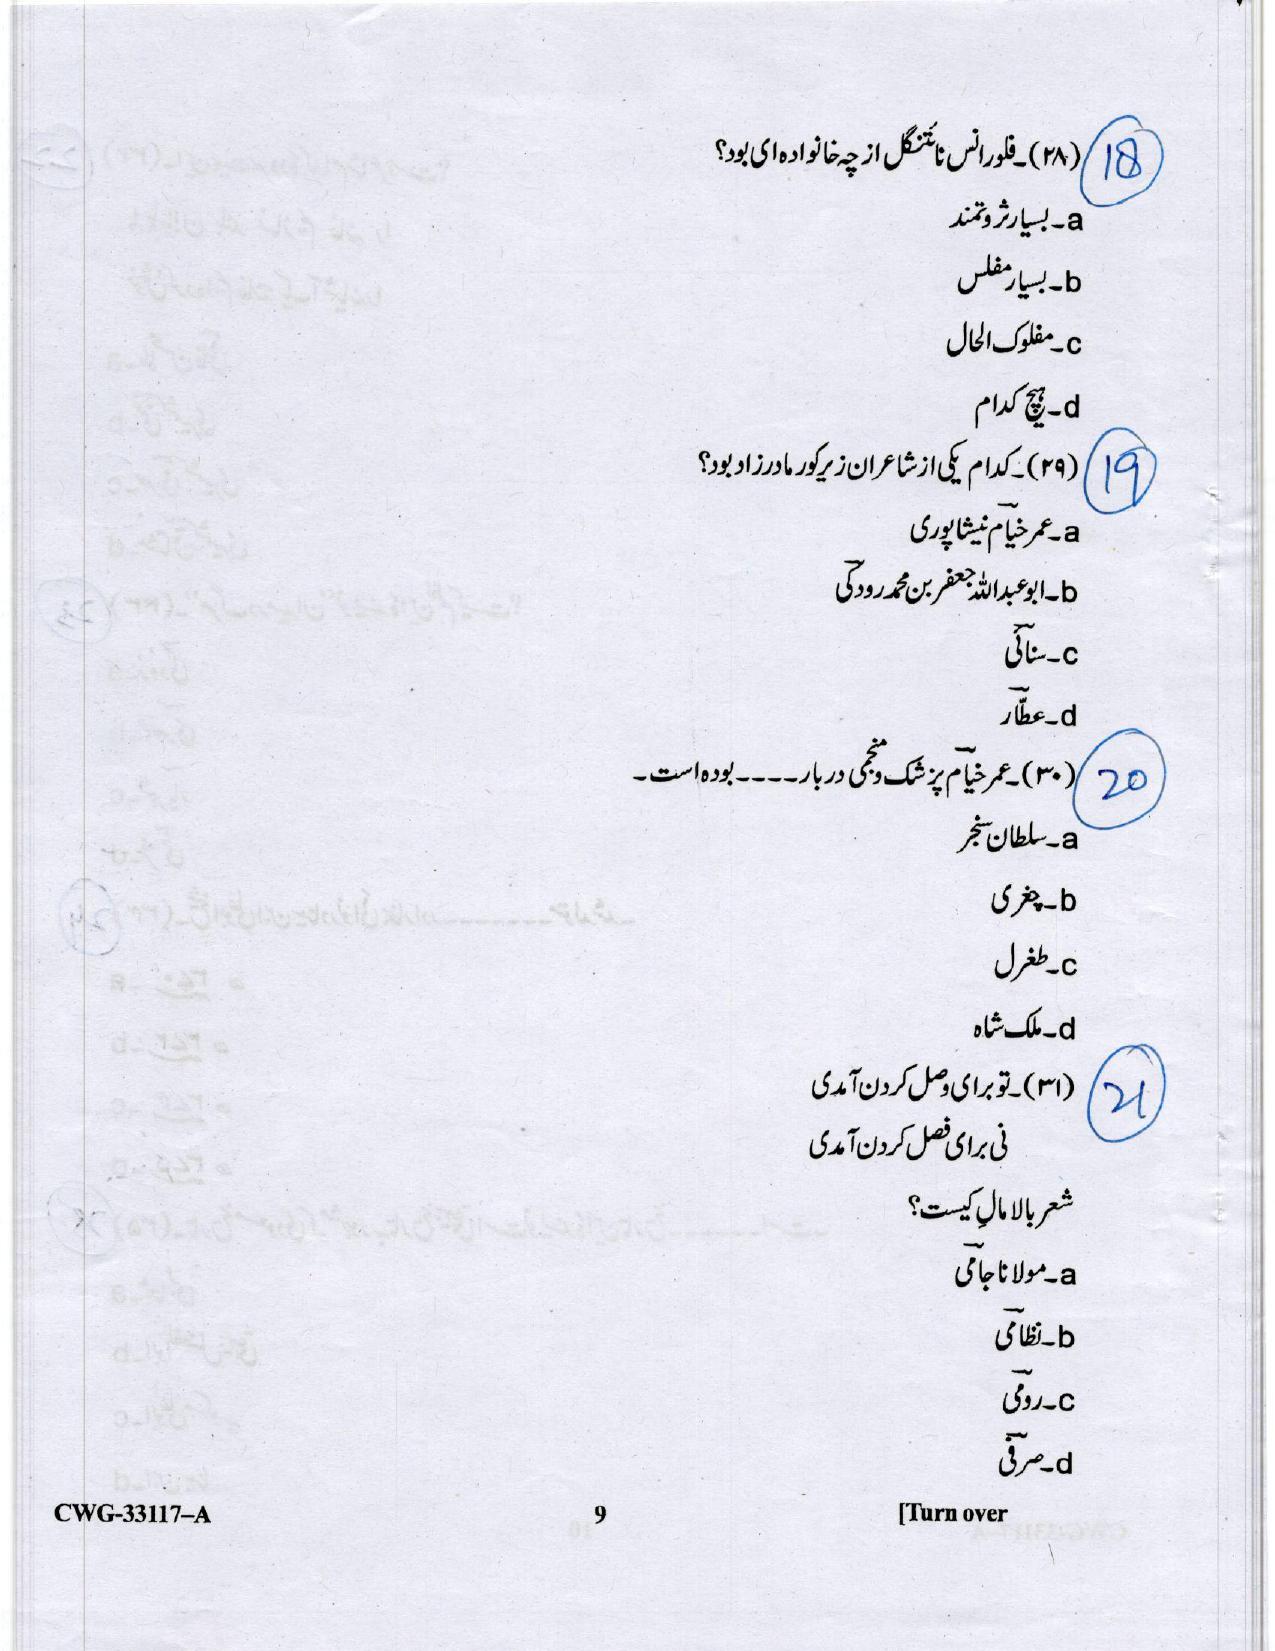 (۲۸)۔فلورانس نائتنگل از چہ خانوادہ ای بود؟ 18
a۔بسیار ثروتمند
b۔بسیار مفلس
c۔مفلوک الحال
d۔ہیچ کدام
(۲۹)۔کدام یکی از شاعران زیر کور مادر زاد بود؟ 19
a۔عمر خیام نیشاپوری
b۔ابو عبداللہ جعفر بن محمد رودکی
c۔سنائی
d۔عطّار
(۳۰)۔عمر خیام پزشک و منجمی دربار۔۔۔۔بودہ است۔ 20
a۔سلطان سنجر
b۔چغری
c۔طغرل
d۔ملک شاہ
(۳۱)۔تو برای وصل کردن آمدی 21
نی برای فصل کردن آمدی
شعر بالا مالِ کیست؟
a۔مولانا جامی
b۔نظامی
c۔رومی
d۔صرفی
CWG-33117–A 9 [Turn over